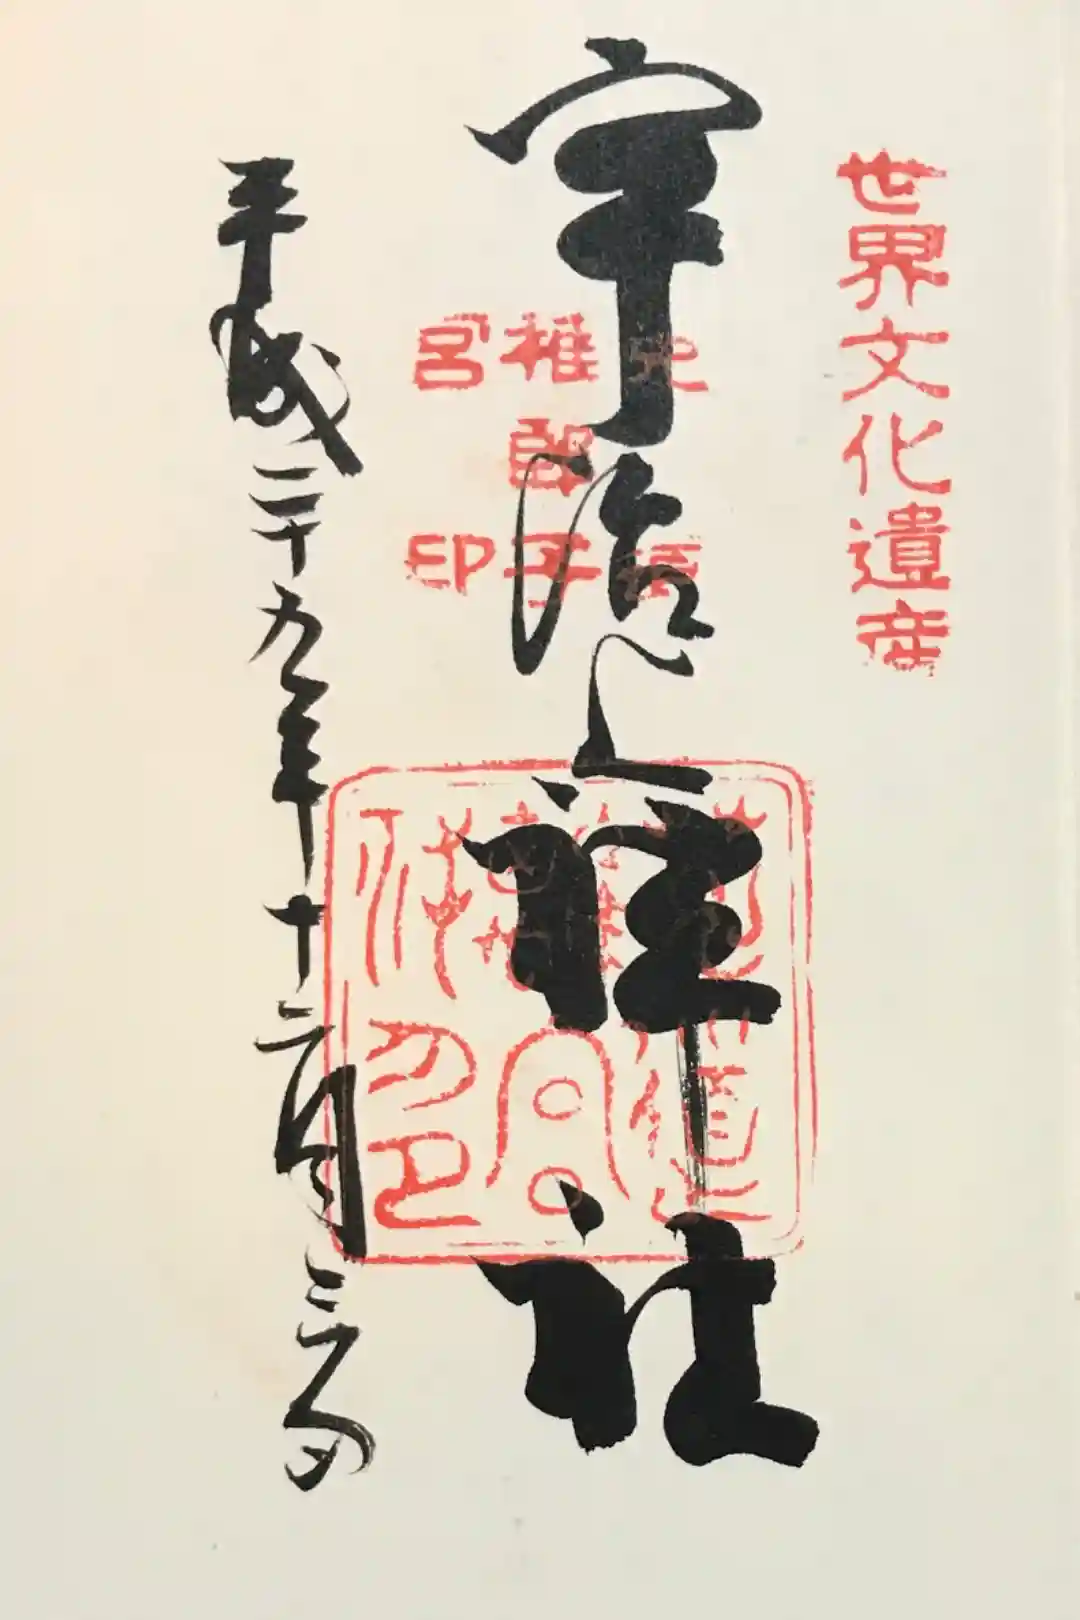 世界文化遺産
宇治上神社
稚郎子
宮印
平成二十九年十二月三日